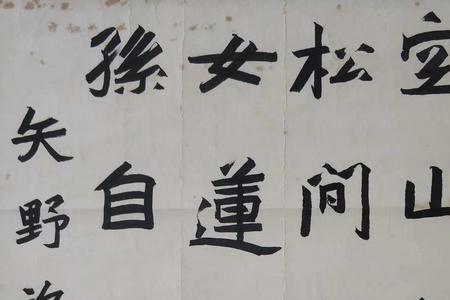 空山
松間
女蓮
孫自
矢野